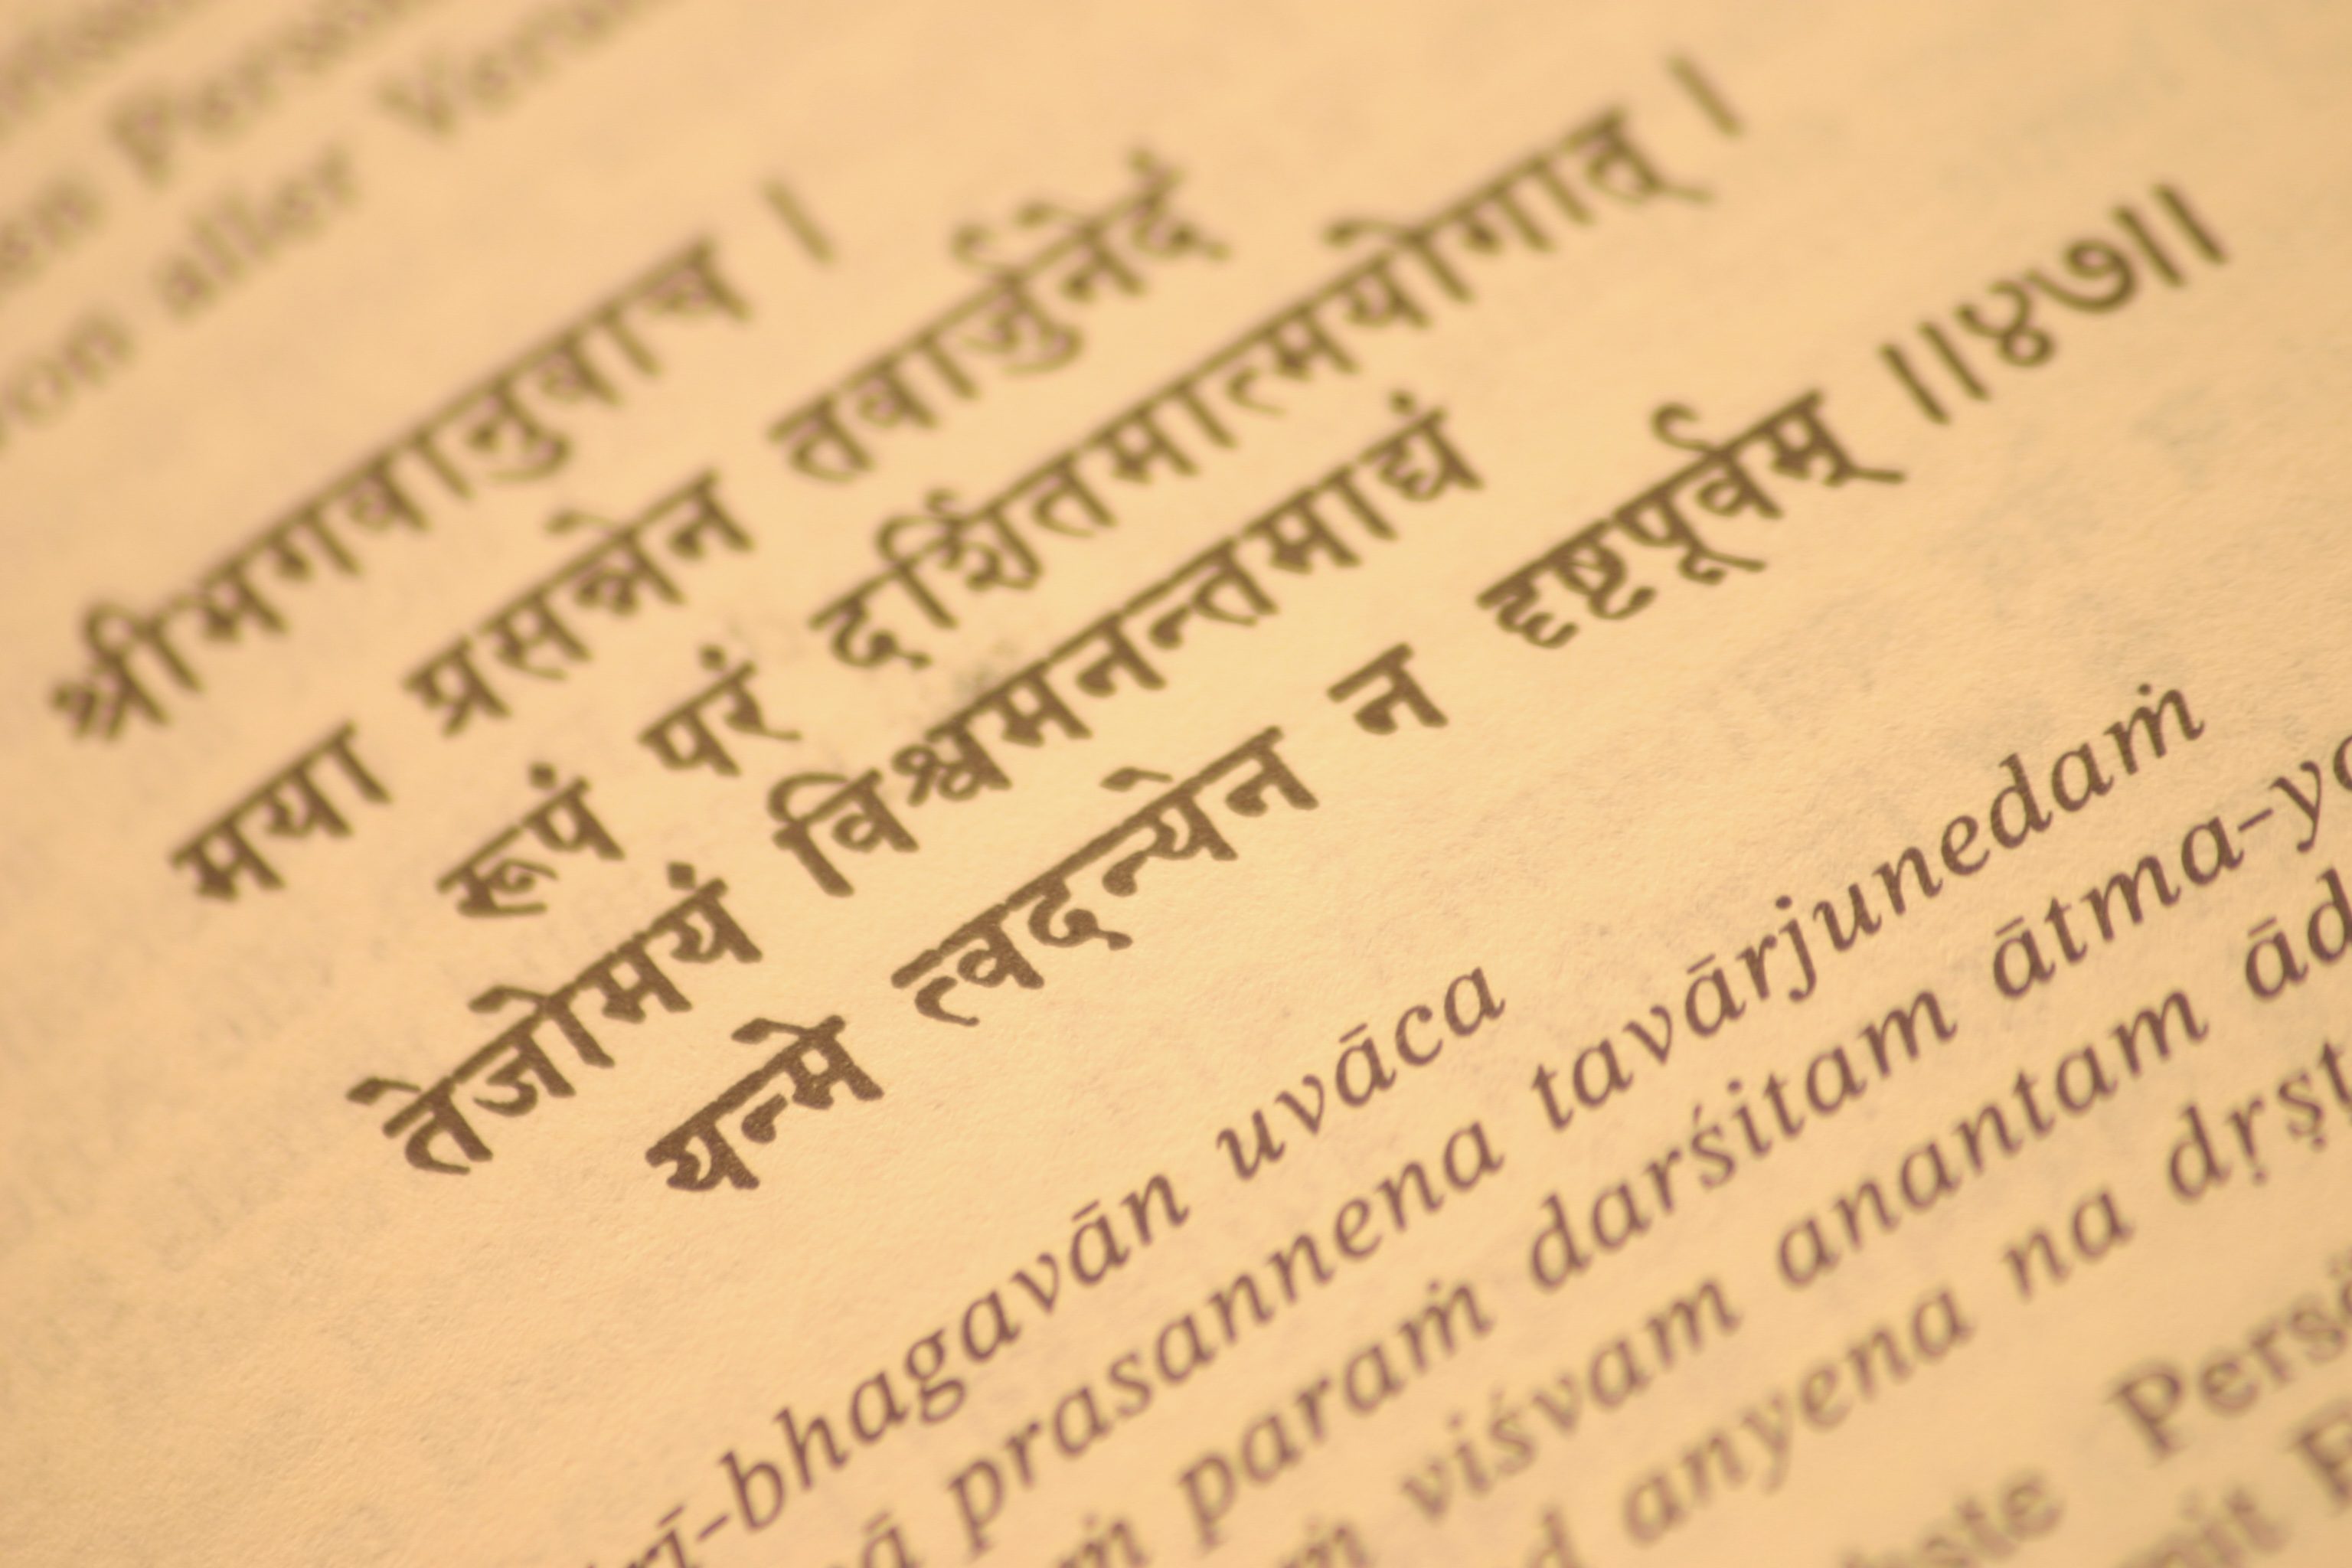 von aller
श्रीभगवानुवाच ।
मया प्रसन्नेन तवार्जुनेदं
रूपं परं दर्शितमात्मयोगात् ।
तेजोमयं विश्वमनन्तमाद्यं
यन्मे त्वदन्येन न दृष्टपूर्वम् ॥४७॥
rī-bhagavān uvāca
prasannena tavārjunedaṁ
paraṁ darśitam ātma-yo
viśvam anantam ād
anyena na dṛṣṭ
Persö
mit